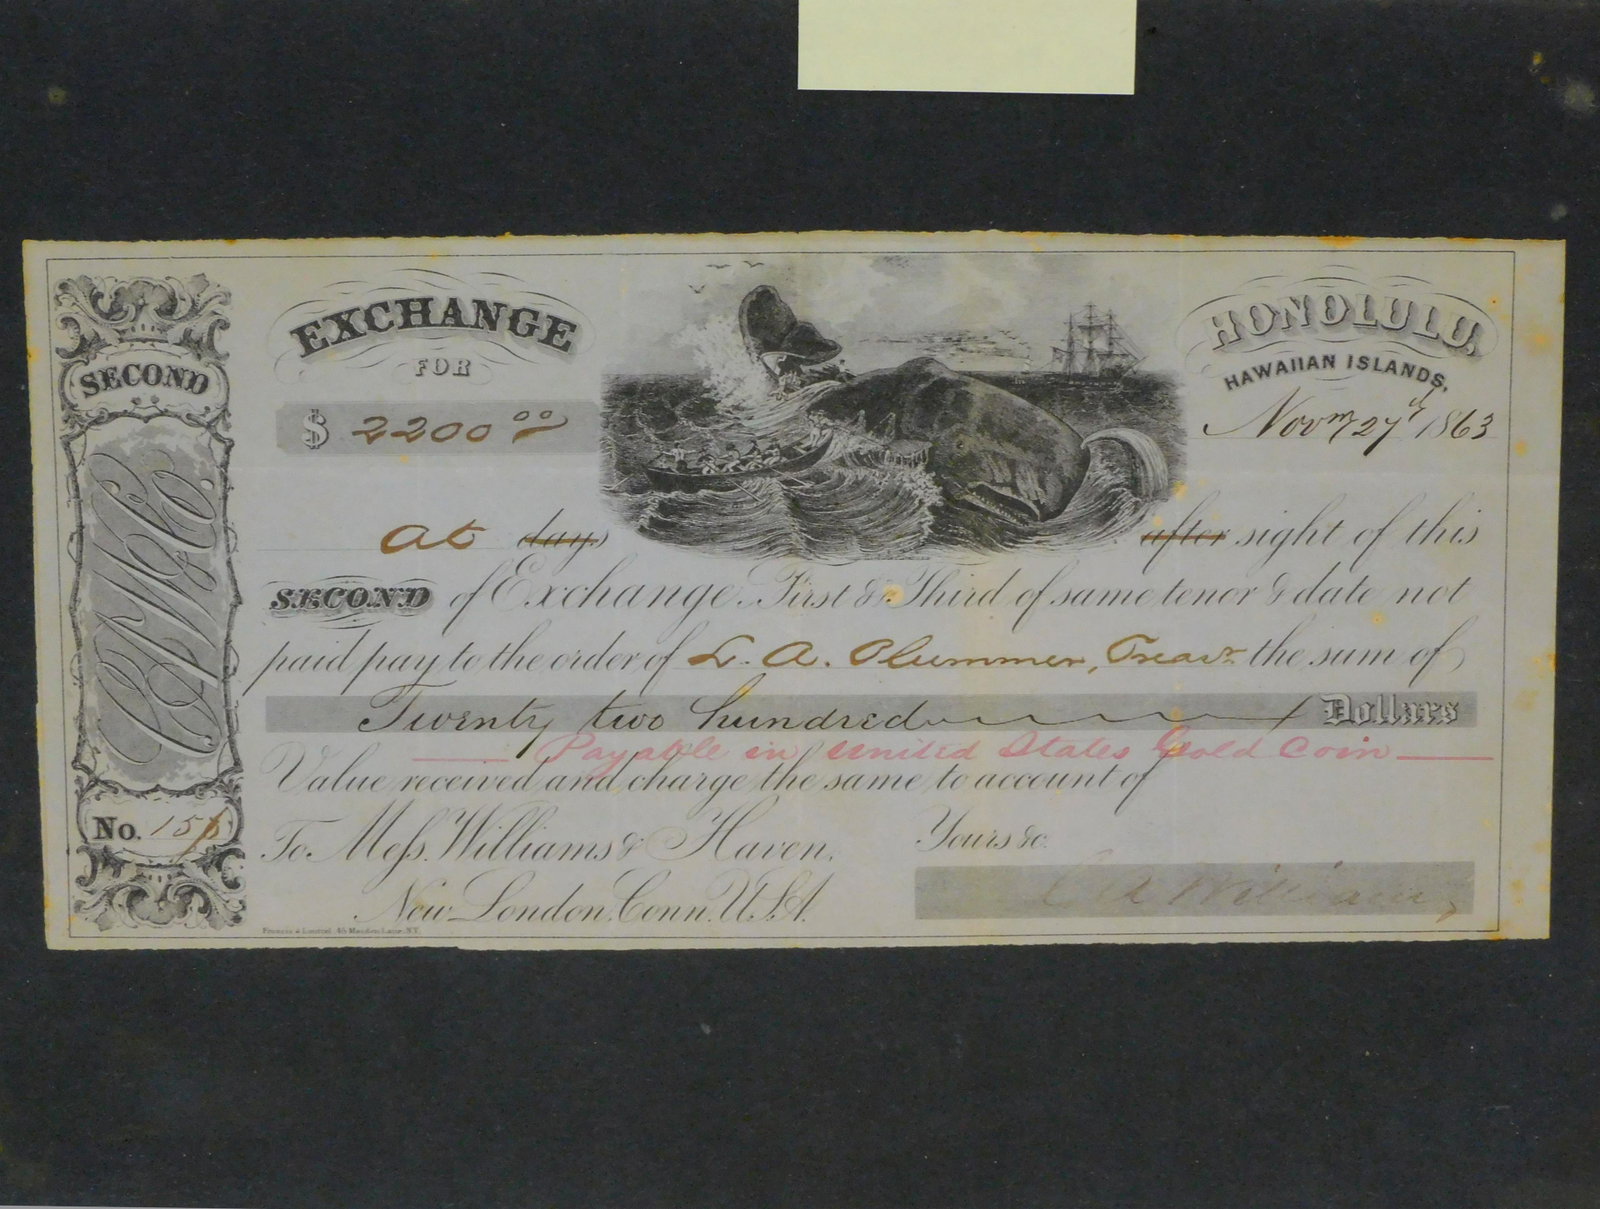 SECOND
C.A.W. & Co.
No. 156
EXCHANGE
FOR
$ 2200 00
HONOLULU,
HAWAIIAN ISLANDS,
Novm 27th 1863
At days after sight of this
SECOND of Exchange. First & Third of same tenor & date not
paid pay to the order of L. A. Plummer, Treasr the sum of
Twenty two hundred Dollars
Payable in United States Gold Coin
Value received and charge the same to account of
To Mess. Williams & Haven,
New London, Conn. U.S.A.
Yours &c.
C A Williams
Francis & Loutrel 45 Maiden Lane N.Y.